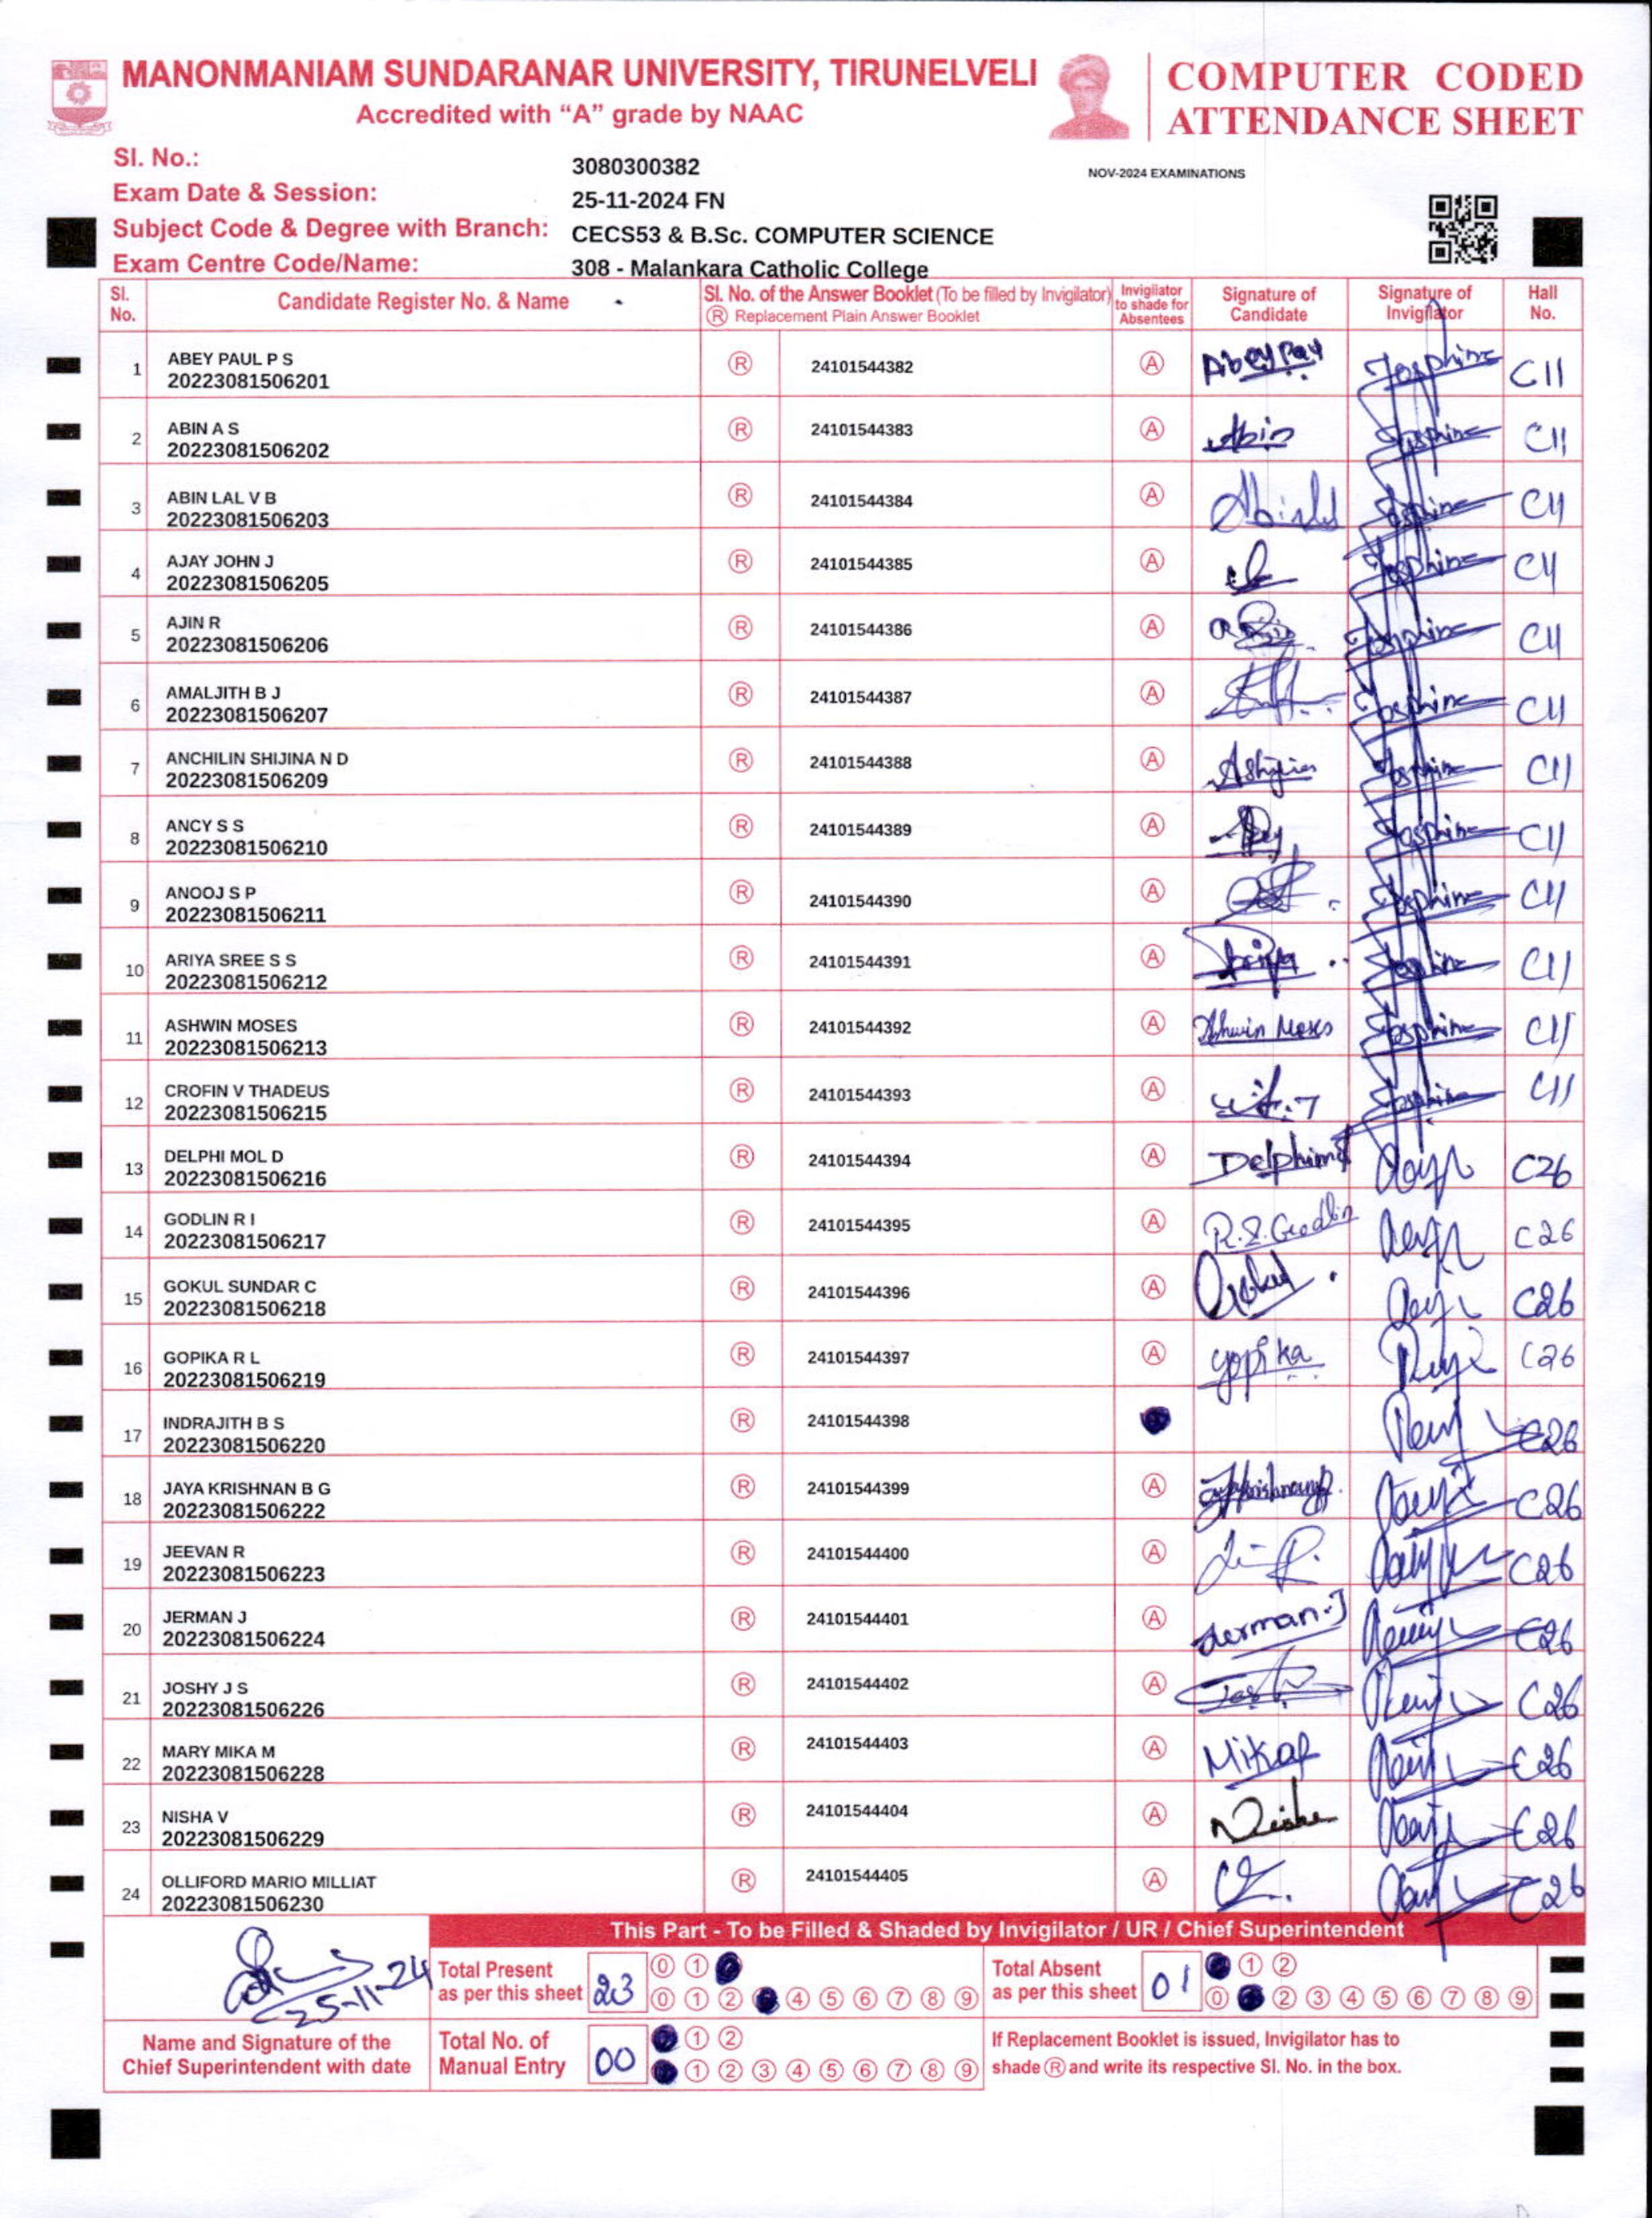 MANONMANIAM SUNDARANAR UNIVERSITY, TIRUNELVELI
Accredited with “A” grade by NAAC
COMPUTER CODED
ATTENDANCE SHEET
Sl. No.: 3080300382
NOV-2024 EXAMINATIONS
Exam Date & Session: 25-11-2024 FN
Subject Code & Degree with Branch: CECS53 & B.Sc. COMPUTER SCIENCE
Exam Centre Code/Name: 308 - Malankara Catholic College
Sl. No. Candidate Register No. & Name Sl. No. of the Answer Booklet (To be filled by Invigilator) Ⓡ Replacement Plain Answer Booklet Invigilator to shade for Absentees Signature of Candidate Signature of Invigilator Hall No.
1 ABEY PAUL P S Ⓡ 24101544382 Ⓐ C11
20223081506201
2 ABIN A S Ⓡ 24101544383 Ⓐ Abin C11
20223081506202
3 ABIN LAL V B Ⓡ 24101544384 Ⓐ C11
20223081506203
4 AJAY JOHN J Ⓡ 24101544385 Ⓐ C11
20223081506205
5 AJIN R Ⓡ 24101544386 Ⓐ C11
20223081506206
6 AMALJITH B J Ⓡ 24101544387 Ⓐ C11
20223081506207
7 ANCHILIN SHIJINA N D Ⓡ 24101544388 Ⓐ C11
20223081506209
8 ANCY S S Ⓡ 24101544389 Ⓐ C11
20223081506210
9 ANOOJ S P Ⓡ 24101544390 Ⓐ C11
20223081506211
10 ARIYA SREE S S Ⓡ 24101544391 Ⓐ C11
20223081506212
11 ASHWIN MOSES Ⓡ 24101544392 Ⓐ Ashwin Moses C11
20223081506213
12 CROFIN V THADEUS Ⓡ 24101544393 Ⓐ C11
20223081506215
13 DELPHI MOL D Ⓡ 24101544394 Ⓐ C26
20223081506216
14 GODLIN R I Ⓡ 24101544395 Ⓐ R.I. Godlin C26
20223081506217
15 GOKUL SUNDAR C Ⓡ 24101544396 Ⓐ C26
20223081506218
16 GOPIKA R L Ⓡ 24101544397 Ⓐ gopika C26
20223081506219
17 INDRAJITH B S Ⓡ 24101544398 C26
20223081506220
18 JAYA KRISHNAN B G Ⓡ 24101544399 Ⓐ C26
20223081506222
19 JEEVAN R Ⓡ 24101544400 Ⓐ C26
20223081506223
20 JERMAN J Ⓡ 24101544401 Ⓐ Jerman.J C26
20223081506224
21 JOSHY J S Ⓡ 24101544402 Ⓐ C26
20223081506226
22 MARY MIKA M Ⓡ 24101544403 Ⓐ C26
20223081506228
23 NISHA V Ⓡ 24101544404 Ⓐ Nisha C26
20223081506229
24 OLLIFORD MARIO MILLIAT Ⓡ 24101544405 Ⓐ C26
20223081506230
This Part - To be Filled & Shaded by Invigilator / UR / Chief Superintendent
25-11-24
Total Present as per this sheet 23 ⓪ ①
⓪ ① ② ④ ⑤ ⑥ ⑦ ⑧ ⑨
Total Absent as per this sheet 01 ① ②
⓪ ② ③ ④ ⑤ ⑥ ⑦ ⑧ ⑨
Name and Signature of the
Chief Superintendent with date
Total No. of Manual Entry 00 ① ②
① ② ③ ④ ⑤ ⑥ ⑦ ⑧ ⑨
If Replacement Booklet is issued, Invigilator has to
shade Ⓡ and write its respective Sl. No. in the box.